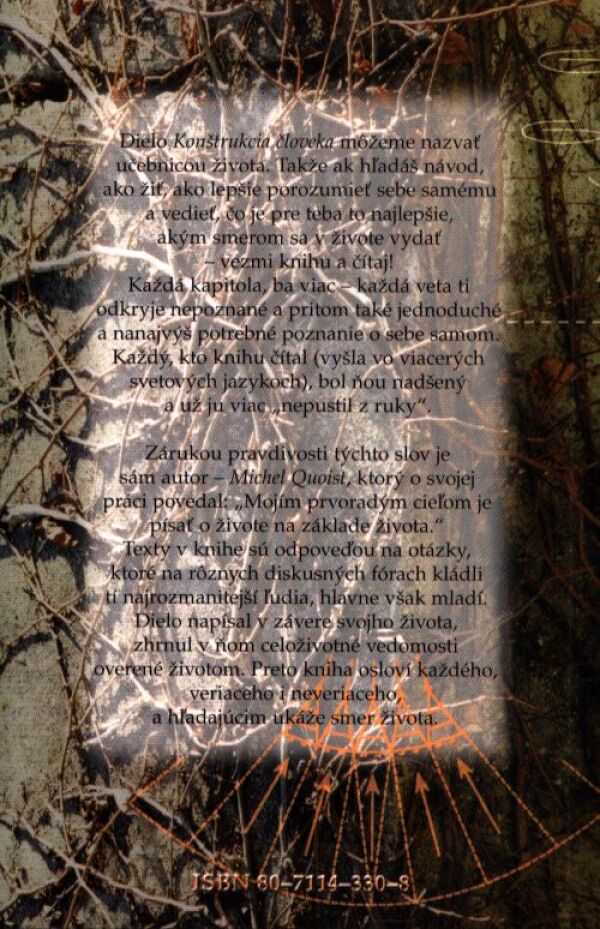 Dielo Konštrukcia človeka môžeme nazvať
učebnicou života. Takže ak hľadáš návod,
ako žiť, ako lepšie porozumieť sebe samému
a vedieť, čo je pre teba to najlepšie,
akým smerom sa v živote vydať
– vezmi knihu a čítaj!
Každá kapitola, ba viac – každá veta ti
odkryje nepoznané a pritom také jednoduché
a nanajvýš potrebné poznanie o sebe samom.
Každý, kto knihu čítal (vyšla vo viacerých
svetových jazykoch), bol ňou nadšený
a už ju viac „nepustil z ruky“.
Zárukou pravdivosti týchto slov je
sám autor – Michel Quoist, ktorý o svojej
práci povedal: „Mojím prvoradým cieľom je
písať o živote na základe života.“
Texty v knihe sú odpoveďou na otázky,
ktoré na rôznych diskusných fórach kládli
tí najrozmanitejší ľudia, hlavne však mladí.
Dielo napísal v závere svojho života,
zhrnul v ňom celoživotné vedomosti
overené životom. Preto kniha osloví každého,
veriaceho i neveriaceho,
a hľadajúcim ukáže smer života.
ISBN 80–7114–330–8